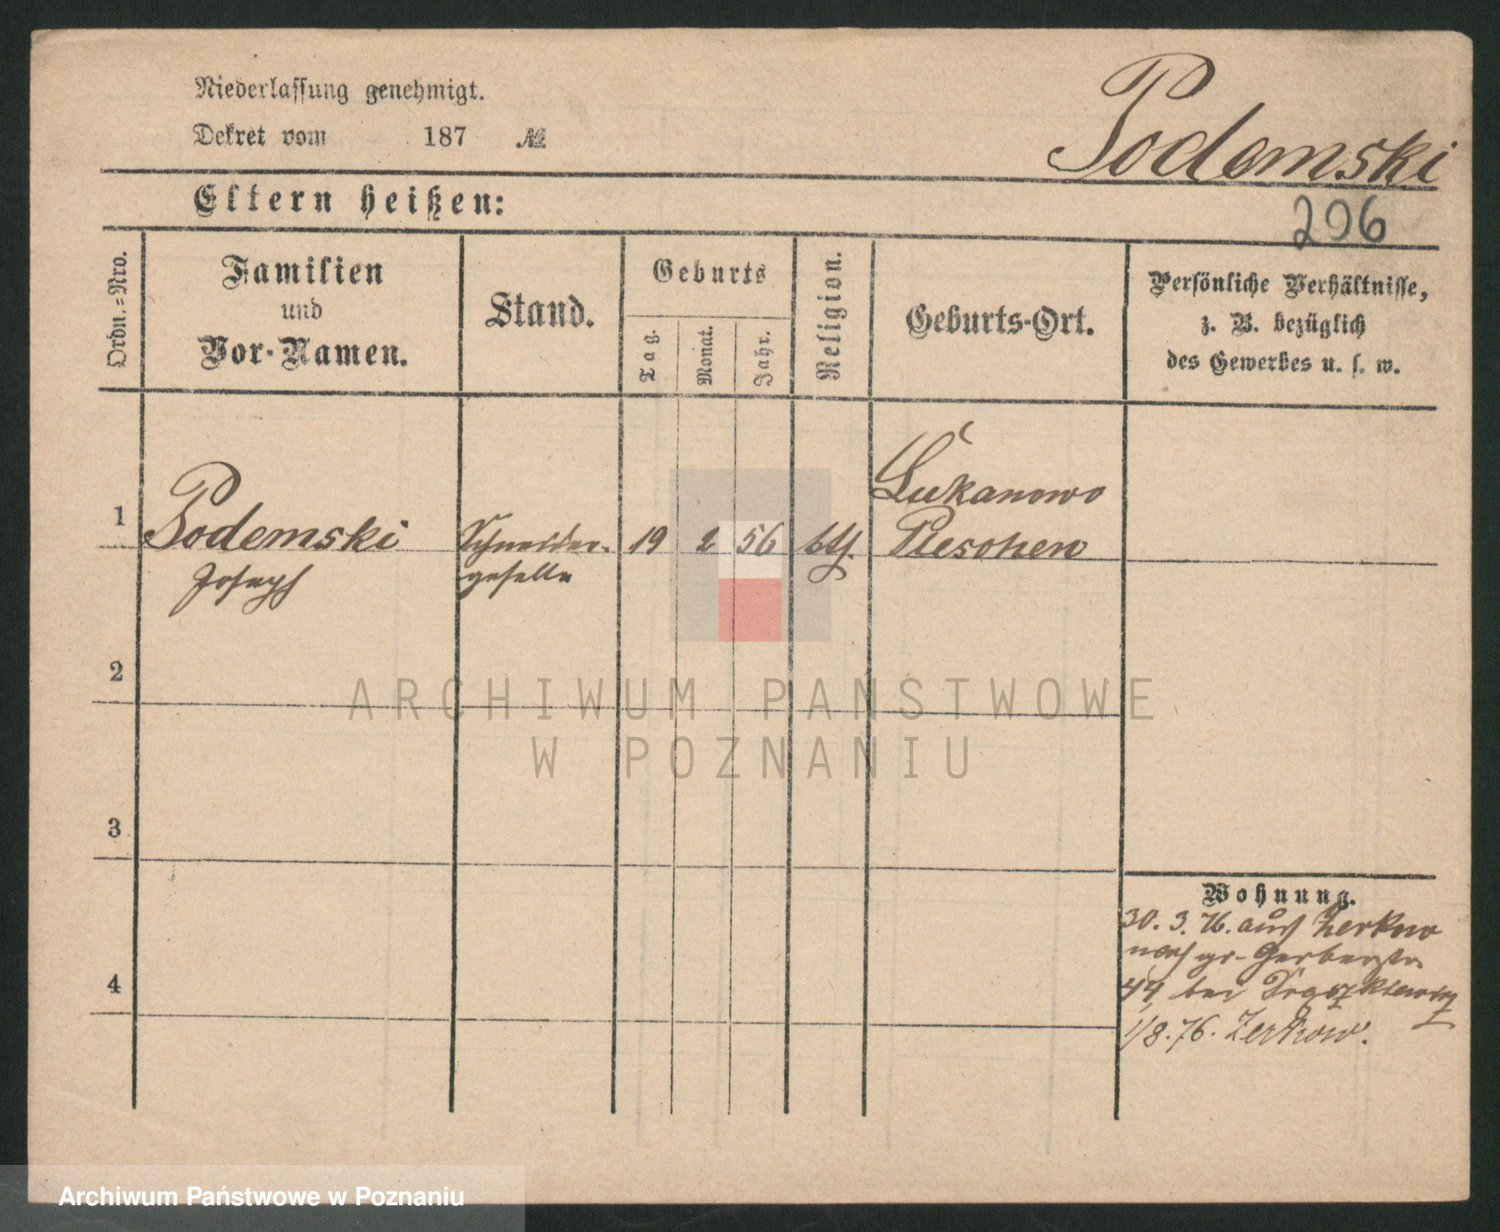 Niederlassung genehmigt.
Dekret vom 187 №
Podemski
Eltern heißen:
206
Ordn.=Nro.
Familien
und
Vor-Namen.
Stand.
Geburts
Tag.
Monat.
Jahr.
Religion.
Geburts-Ort.
Persönliche Verhältnisse,
z. B. bezüglich
des Gewerbes u. s. w.
1
Podemski
Joseph
Schneider-
geselle
19
2
56
kth.
Lukanowo
Pleschen
2
3
4
Wohnung.
30. 3. 76. aus Zerkow
nach gr. Gerberstr.
44 bei
1/8. 76. Zerkow.
ARCHIWUM PAŃSTWOWE
W POZNANIU
Archiwum Państwowe w Poznaniu